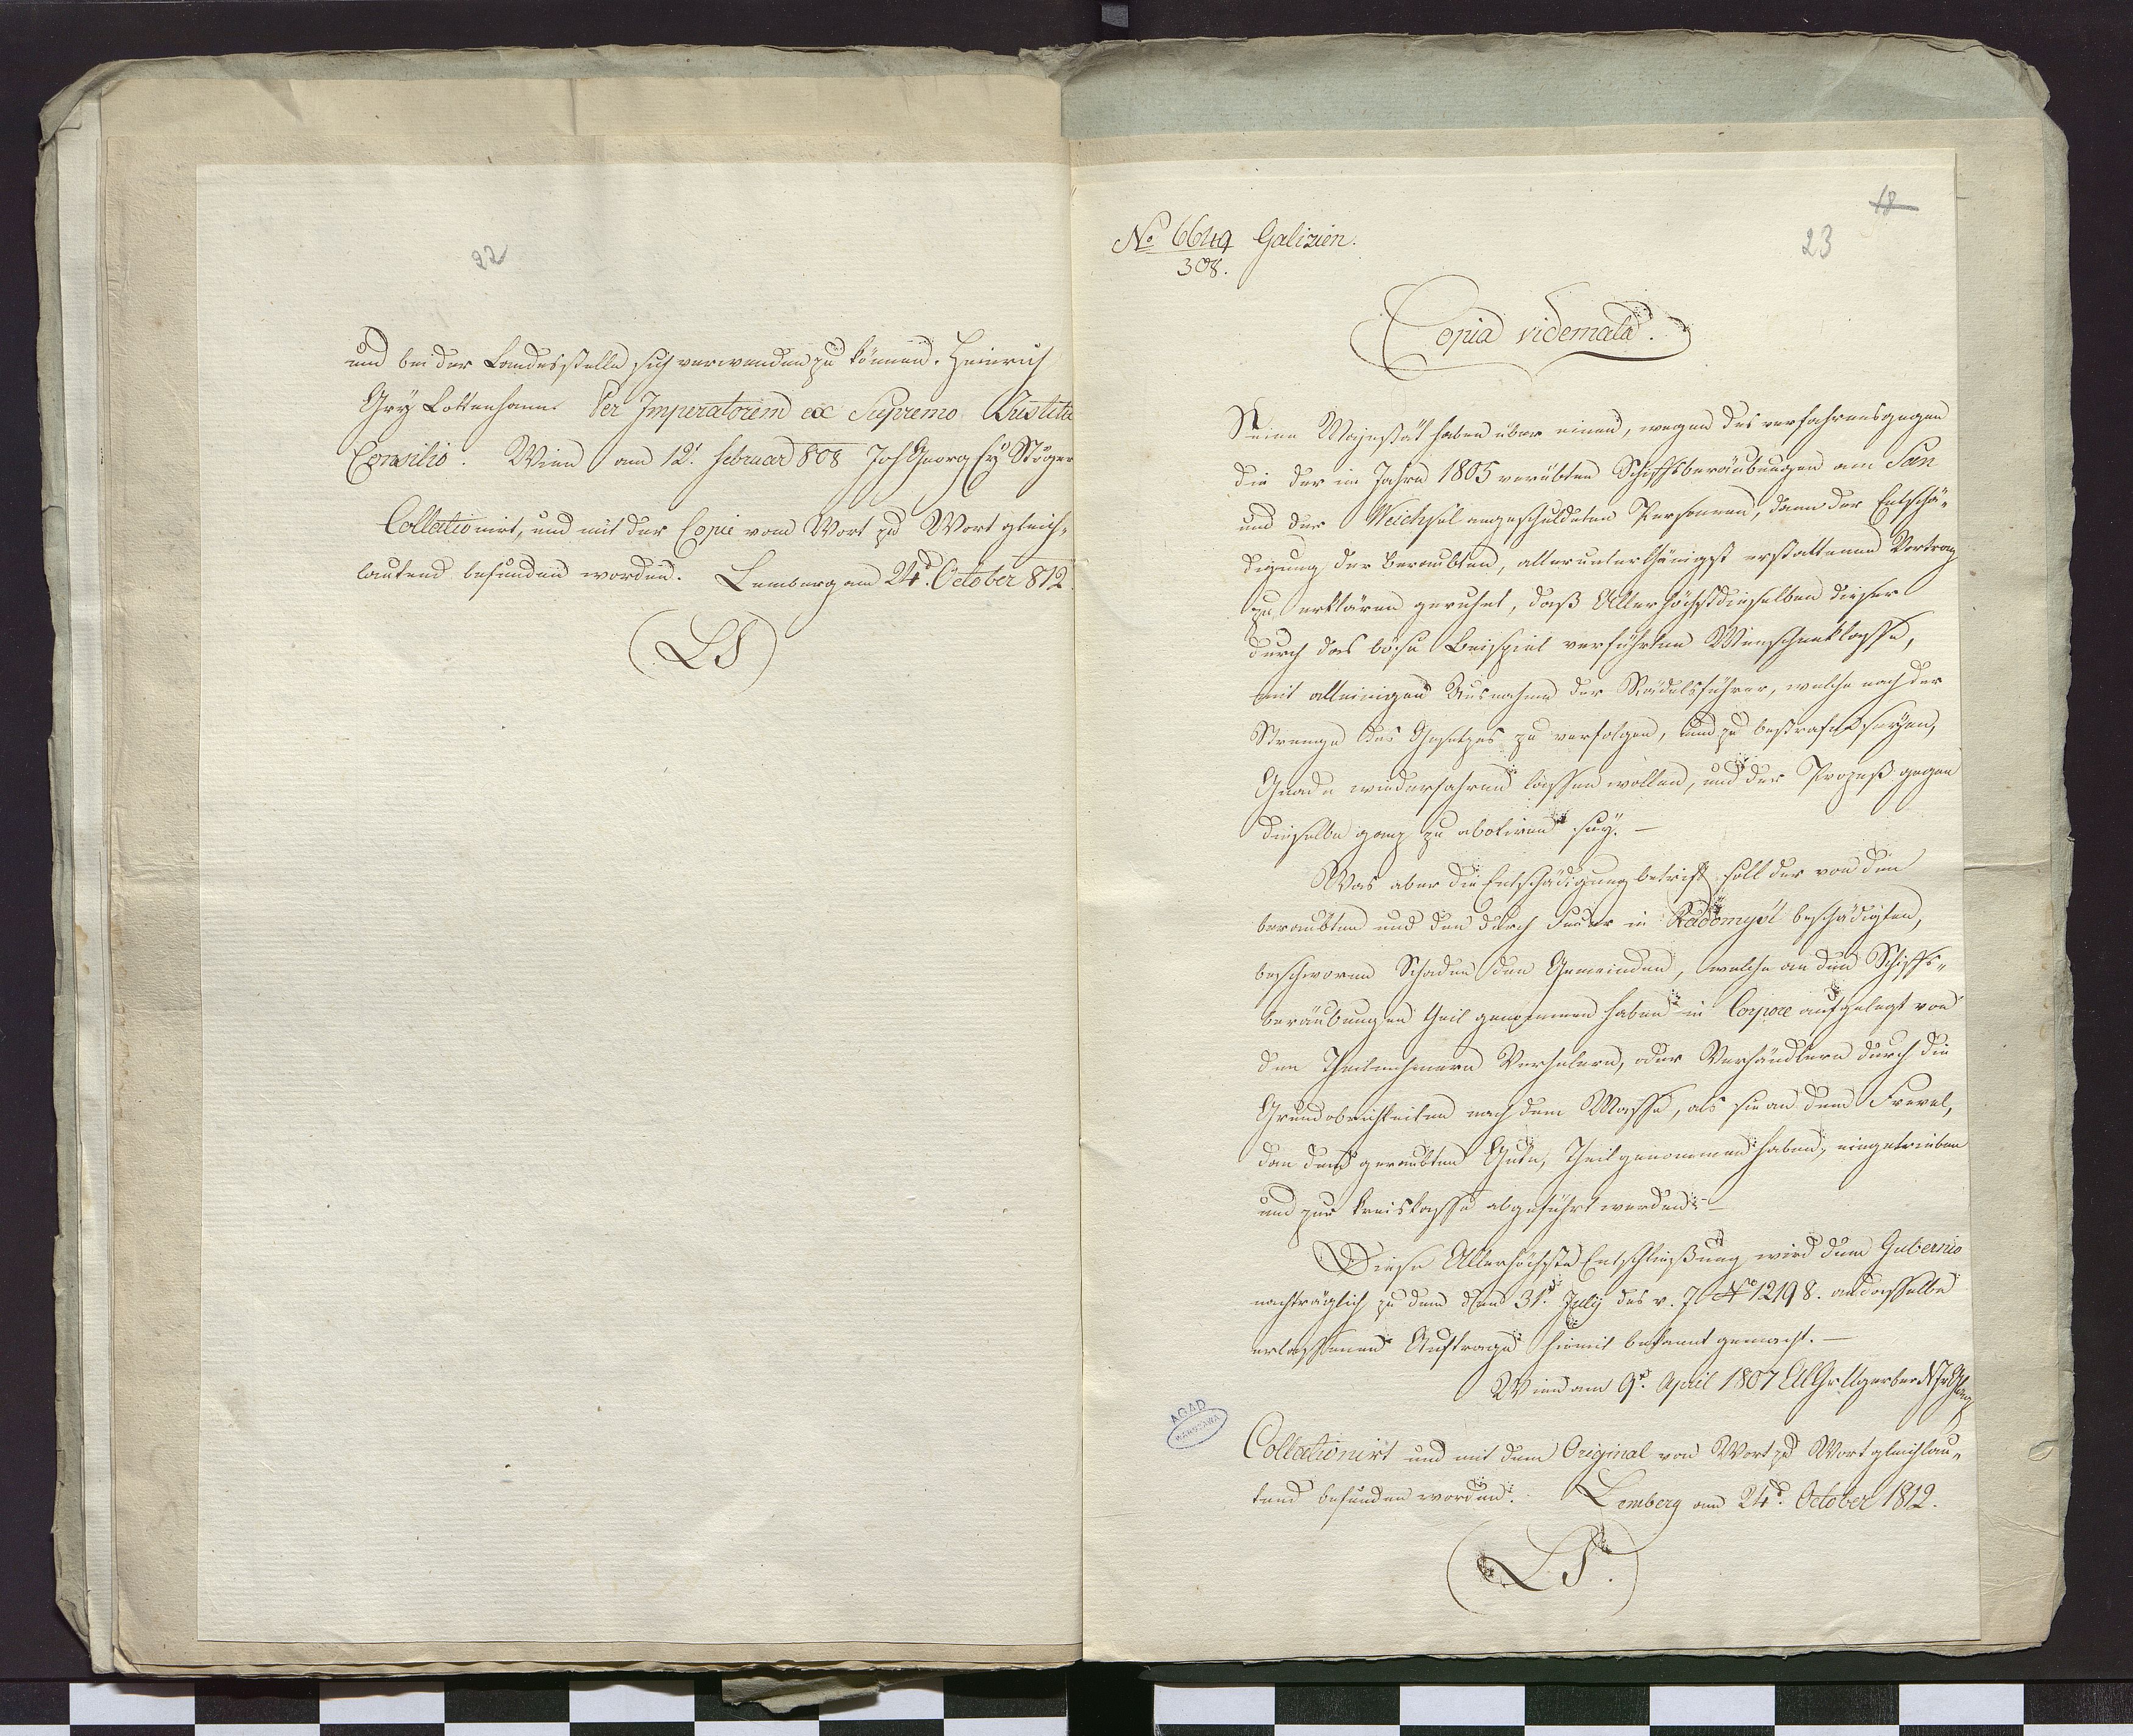 22
und bei der Landesstelle sich verwenden zu können. Heinrich
Grf Rottenhann. Per Imperatorem ex Supremo Justitiæ
Consilio. Wien am 12t. Februar 808 Joh Georg Stöger
Collationirt, und mit der Copie vom Wort zu Wort gleich-
lautend befunden worden. Lemberg am 24t. October 812.
(LS)
18
23
No 6649 Galizien.
308.
Copia videmata.
Seine Majestät haben über einen, wegen des verfahrens gegen
die der im Jahre 1805 verübten Schiffsberäubungen am San
und der Weichsel angeschuldeten Personen, dann der Entschä-
digung der Beraubten, allerunterthänigst erstattenen Vortrag
zu erklären geruhet, daß Allerhöchstdieselben dieser
durch das böse Beispiel verführten Menschenklasse,
mit alleiniger Ausnahme der Rädelsführer, welche nach der
Strenge des Gesetzes zu verfolgen, und zu bestrafen seyen,
Gnade wiederfahren lassen wollen, und der Prozeß gegen
dieselbe ganz zu aboliren sey. –
Was aber die Entschädigung betrift soll der von den
beraubten und den durch Feuer in Radomysl beschädigten,
beschworne Schaden den Gemeinden, welche an den Schiffs-
beräubungen theil genommen haben in Corpore aufgelegt von
den Theilnehmern Verhelern, oder Verhändlern durch die
Grundobrigkeiten nach dem Masse, als sie an dem Frevel,
dan dem geraubten Gute, Theil genommen haben, eingetrieben
und zur Kreiskasse abgeführt werden. –
Diese Allerhöchste Entschließung wird dem Gubernio
nachträglich zu dem den 31t. July des v. J No 12198. an dasselbe
erlassenen Auftrage hiemit bekannt gemacht. –
Wien am 9t. April 1807
AGAD
WARSZAWA
Collationirt und mit dem Original von Wort zu Wort gleichlau-
tend befunden worden. Lemberg am 24t. October 1812.
(LS.)